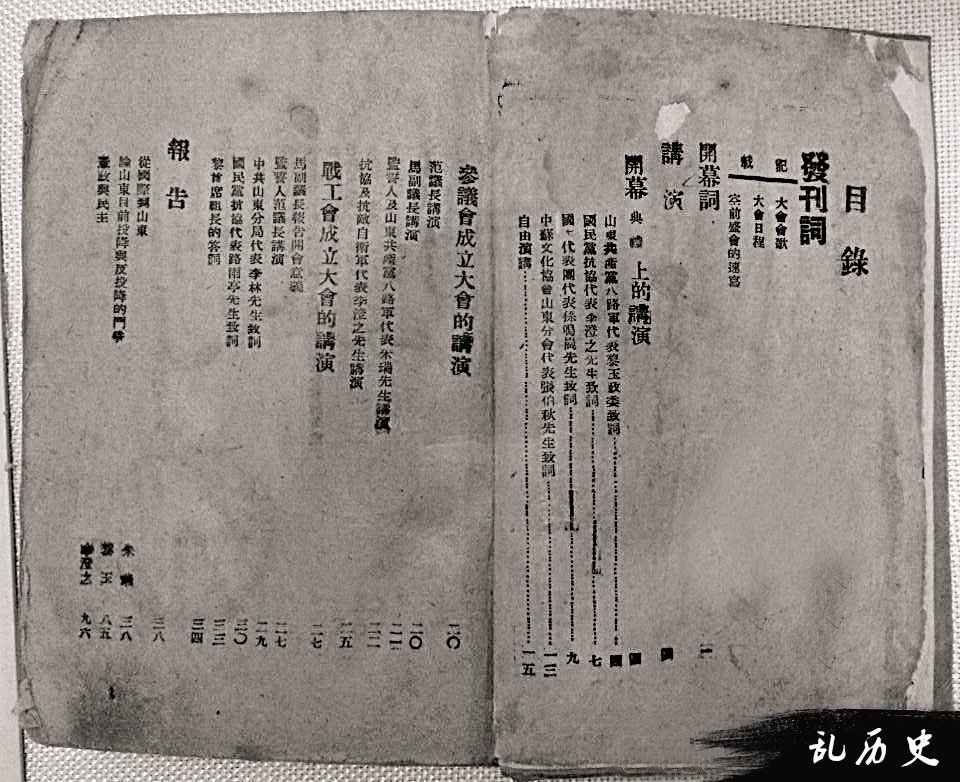 目錄
發刊詞
記載
大會會歌
大會日程
空前盛會的速寫
開幕詞 一
講演 四
開幕典禮上的講演 四
山東共產黨八路軍代表黎玉政委致詞 四
國民黨抗協代表李澄之先生致詞 七
國 代表團代表徐鳴嵐先生致詞 九
中蘇文化協會山東分會代表張伯秋先生致詞 一三
自由演講 一五
參議會成立大會的講演 二〇
范議長講演 二〇
馬副議長講演 二一
監誓人及山東共產黨八路軍代表朱瑞先生講演 二二
抗協及抗敵自衛軍代表李澄之先生講演 二五
戰工會成立大會的講演 二七
馬副議長報告開會意義 二七
監誓人范議長講演 二九
中共山東分局代表李林先生致詞 三〇
國民黨抗協代表路雨亭先生致詞 三三
黎首席組長的答詞 三四
報告 三八
從國際到山東 朱瑞 三八
論山東目前投降與反投降的鬥爭 黎玉 八五
憲政與民主 李澄之 九六
乱历史